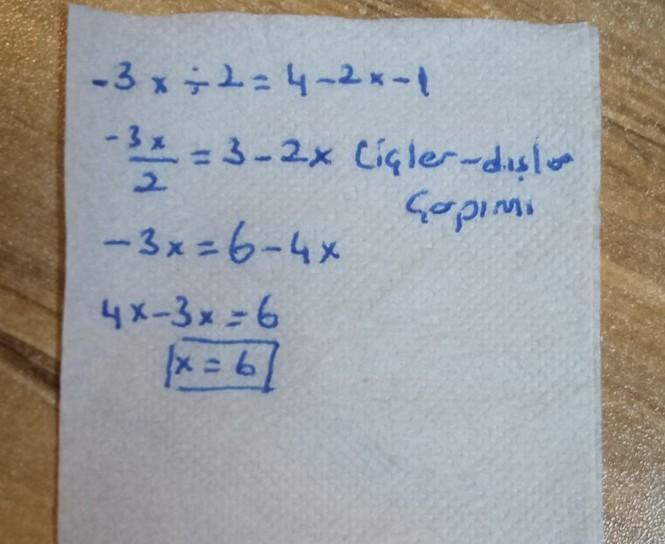 -3x÷2=4-2x-1
-3x/2 = 3-2x içler-dışlar
Çarpımı
-3x=6-4x
4x-3x=6
x=6